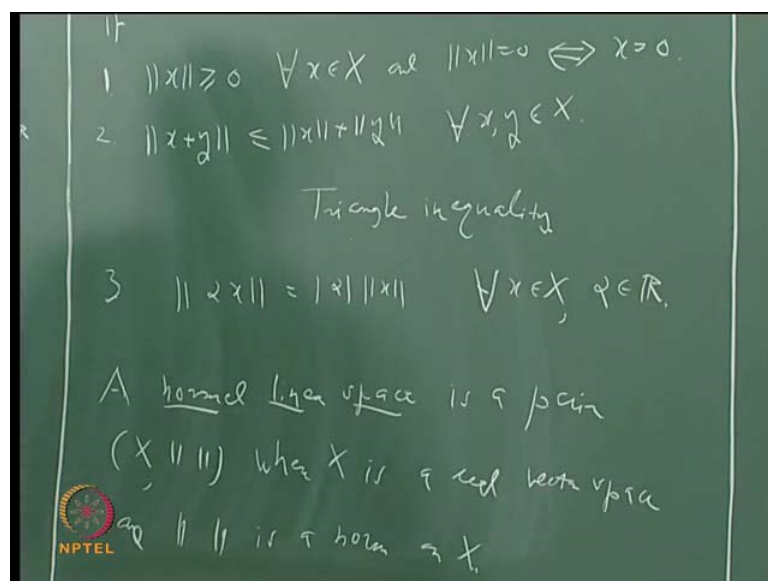 If
1. ||x|| ≥ 0 ∀ x ∈ X and ||x|| = 0 ⟺ x = 0.
2. ||x+y|| ≤ ||x|| + ||y|| ∀ x, y ∈ X.
Triangle inequality
3 ||αx|| = |α| ||x|| ∀ x ∈ X, α ∈ ℝ.
A normed linear space is a pair
(X, || ||) where X is a real vector space
and || || is a norm on X.
NPTEL